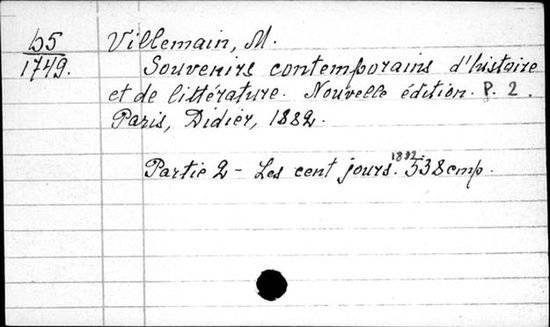 b5
1749.
Villemain, M.
Souvenirs contemporains d'histoire
et de littérature. Nouvelle édition. P. 2.
Paris, Didier, 1882.
Partie 2 - Les cent jours. 1882. 538 стр.